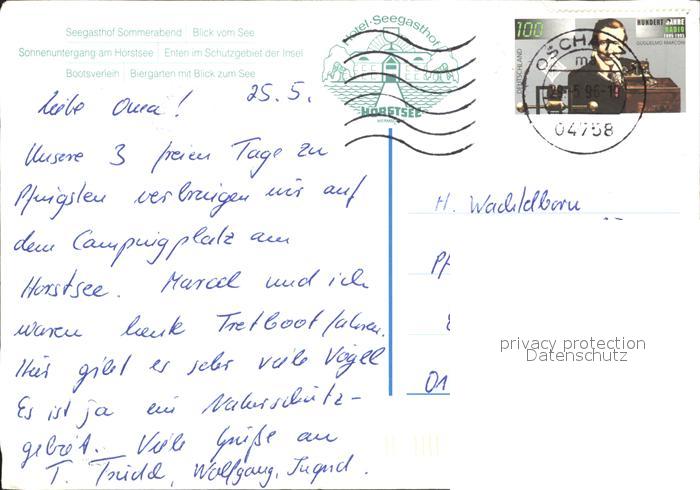 Seegasthof Sommerabend | Blick vom See
Sonnenuntergang am Horstsee | Enten im Schutzgebiet der Insel
Bootsverleih | Biergarten mit Blick zum See
Hotel-Seegasthof
HORSTSEE
100
DEUTSCHLAND
HUNDERT JAHRE
RADIO
1895-1995
GUGLIELMO MARCONI
OSCHATZ
04758
liebe Oma! 25.5.
Unsere 3 freien Tage zu
Pfingsten verbringen wir auf
dem Campingplatz am
Horstsee. Marcel und ich
waren heute Tretboot fahren.
Hier gibt es sehr viele Vögel
Es ist ja ein Naturschutz-
gebiet. Viele Grüße an
T. Trudel, Wolfgang, Ingrid.
H. Wachtelborn
Pf
01
privacy protection
Datenschutz